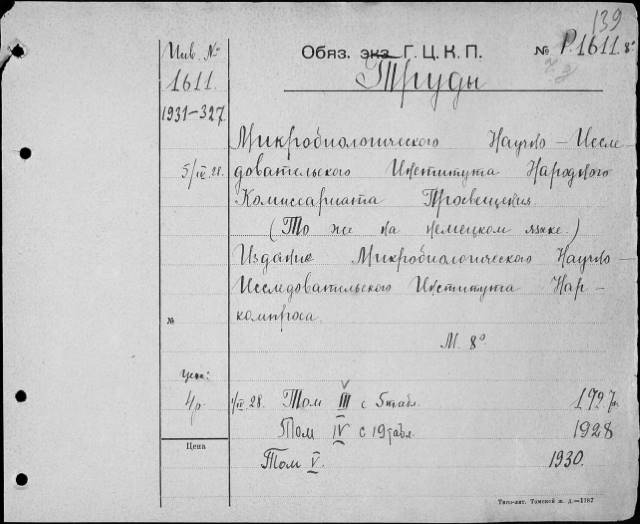 139
Инв. №
1611
1931-327
Обяз. экз Г. Ц. К. П.
№ Р.1611 8°
Труды
Микробиологического Научно-Иссле-
5/IV.28. довательского Института Народного
Комиссариата Просвещения.
(То же на немецком языке.)
Издание Микробиологического Научно-
Исследовательского Института Нар-
компроса.
№
М. 8°
Цена:
4р 1/IV 28. Том III с 5 табл. 1927г.
Том IV с 19 табл. 1928
Цена
Том V. 1930.
Типо-лит. Томской ж. д.—1787